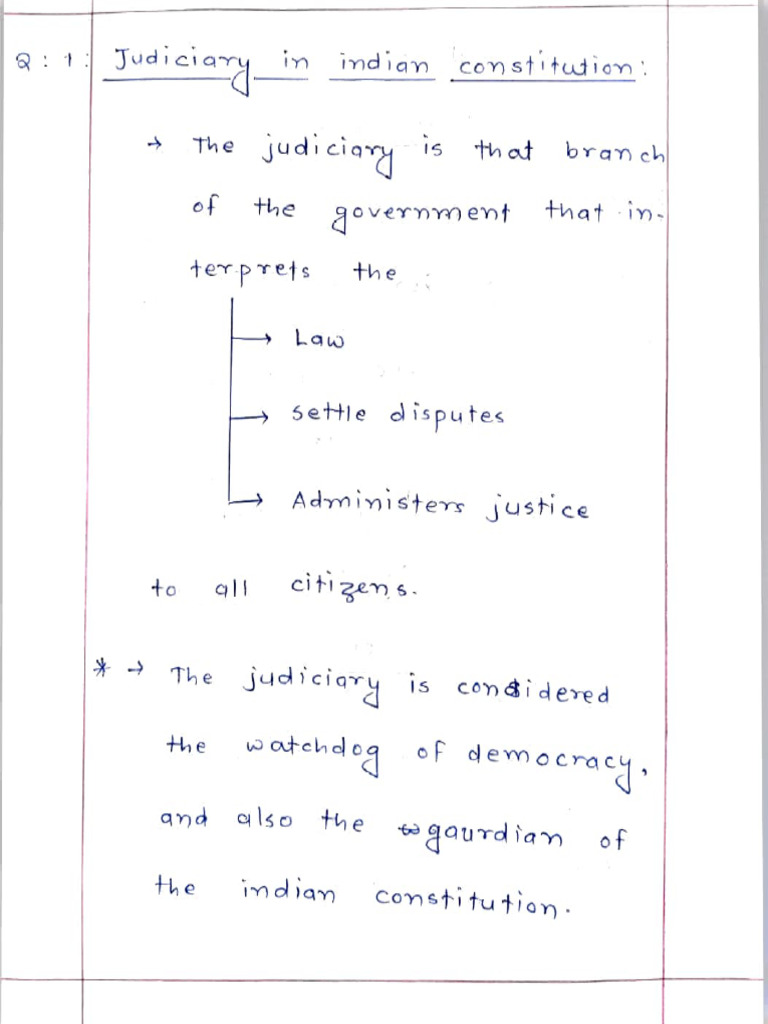 Q : 1 : Judiciary in indian constitution :
→ The judiciary is that branch
of the government that in-
terprets the :
→ Law
→ settle disputes
→ Administers justice
to all citizens.
* → The judiciary is considered
the watchdog of democracy,
and also the gaurdian of
the indian constitution.